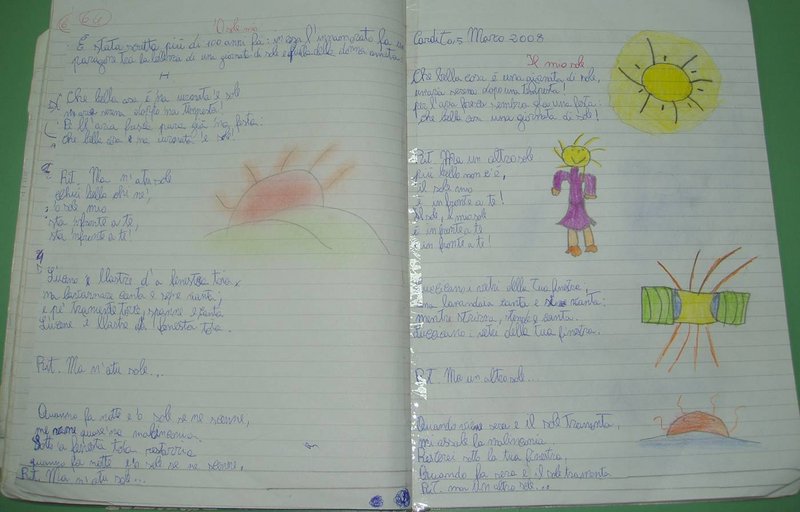 'O sole mio
È stata scritta più di 100 anni fa: in essa l'innamorato fa un
paragone tra la bellezza di una giornata di sole e quella della donna amata
Che bella cosa è na iurnata 'e sole
n'aria serena doppo na tempesta!
Pe ll'aria fresca pare già na festa:
che bella cosa e na iurnata 'e sole!
Rit. Ma n'atu sole
cchiù bello ohi ne',
'o sole mio
sta nfronte a te,
sta nfronte a te!
Lucene e llastre d'a fenesta toia,
na lavannara canta e se ne vanta;
e pe' tramente torce, spanne e canta
Lucene e llastre d'a fenesta toia.
Rit. Ma n'atu sole...
Quanno fa notte e 'o sole se ne scenne,
me vene quase 'na malincunia.
Sotto 'a fenesta toia restarria
quanno fa notte e 'o sole se ne scenne,
Rit. Ma n'atu sole...
Cardito, 5 Marzo 2008
Il mio sole
Che bella cosa è una giornata di sole,
un'aria serena dopo una tempesta!
per l'aria fresca sembra già una festa:
che bella cosa una giornata di sole!
Rit. Ma un altro sole
più bello non c'è,
il sole mio
è in fronte a te!
Il sole, il mio sole
è in fronte a te
è in fronte a te!
Luccicano i vetri della tua finestra,
una lavandaia canta e si vanta:
mentre strizza, stende e canta.
Luccicano i vetri della tua finestra.
Rit. Ma un altro sole...
Quando viene sera e il sole tramonta,
mi assale la malinconia.
Resterei sotto la tua finestra,
Quando fa sera e il sole tramonta
Rit. ma un altro sole...